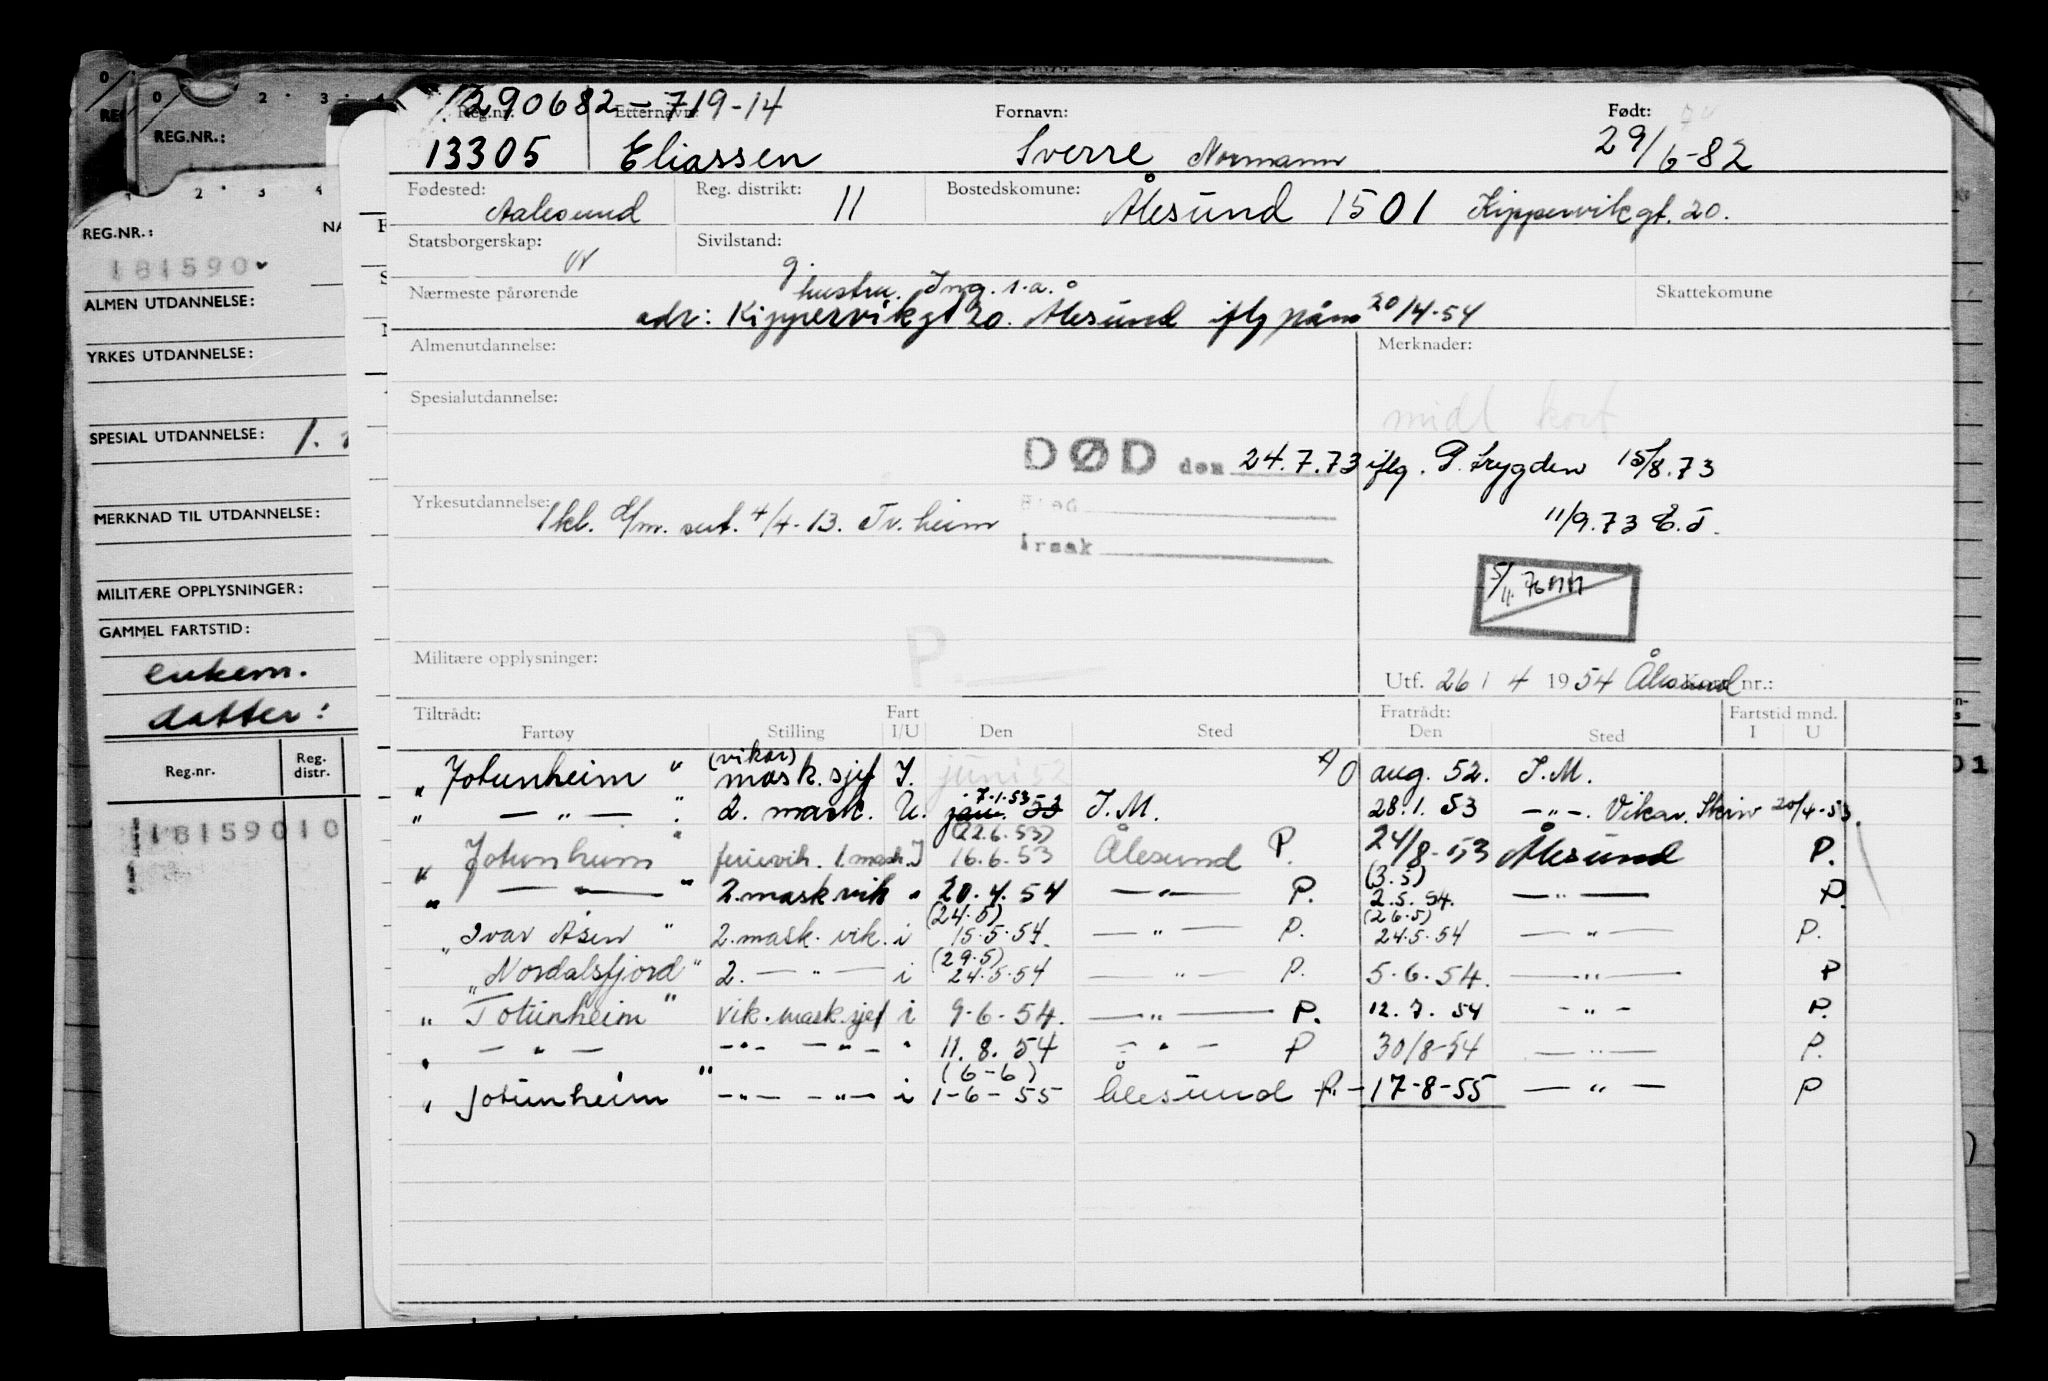 290682-719-14
Reg.nr. Etternavn: Fornavn: Født:
13305 Eliassen Sverre Normann 29/6-82
Fødested: Aalesund Reg. distrikt: 11 Bostedskomune: Ålesund 1501 Kippervikgt. 20.
Statsborgerskap: N Sivilstand: g.
Nærmeste pårørende hustru. Ing. s.a. Skattekomune
adr: Kippervikgt 20. Ålesund iflg påm 20/4-54
Almenutdannelse: Merknader:
Spesialutdannelse: midl kort
DØD den 24.7.73 iflg. P. trygden 15/8.73
Yrkesutdannelse: 1kl. d/m. sert. 4/4-13. Tr.heim 11/9.73 E.T.
Årsak
5/11.76
P.
Militære opplysninger: Utf. 26/4 1954 Ålesund Kort nr.:
Tiltrådt: Fart Fratrådt: Fartstid mnd.
Fartøy Stilling I/U Den Sted Den Sted I U
" Jotunheim " (vikar) mask.sjef I. juni 52 A/O aug. 52. I.M.
" — " — " 2. mask. U. jan. 53 7.1.53 I.M. 28.1.53 —"—. Vikar. Skriv 20/4-53.
" Jotunheim " ferievik. 1. mask. I (22.6.53) 16.6.53 Ålesund P. 24/8-53 Ålesund P.
" — " — " 2.mask vik " 20.4.54 — " — P. (3.5) 2.5.54. — " — P.
" Ivar Åsen " 2.mask. vik. i (24.5) 15.5.54. — " — P. (26.5) 24.5.54 — " — P.
" Nordalsfjord " 2. — " — i (29.5) 24.5.54 — " — P. 5.6.54. — " — P
" Jotunheim " vik. mask.sjef i 9.6.54. — " — P. 12.7.54 - " - P.
" — " — — " — — " — " 11.8.54 — " — P 30/8-54 — " — P.
" Jotunheim " — " — — " — i (6-6) 1-6-55 Ålesund P. - 17-8-55 — " — P
REG.NR.:
REG.NR.: NA
181590
ALMEN UTDANNELSE:
YRKES UTDANNELSE:
SPESIAL UTDANNELSE: 1.
MERKNAD TIL UTDANNELSE:
MILITÆRE OPPLYSNINGER:
GAMMEL FARTSTID:
enkem.
datter:
Reg.nr. Reg. distr.
18159010